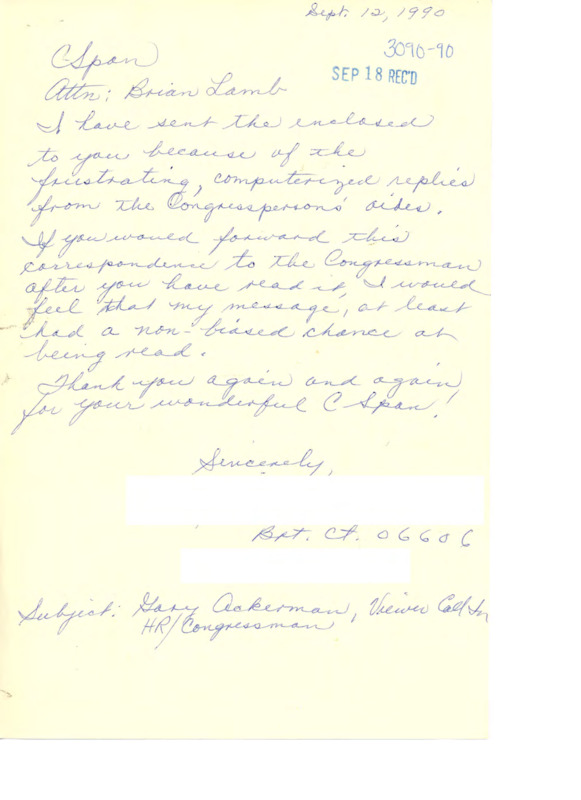 Sept. 12, 1990
3090-90
SEP 18 REC'D
C Span
Attn: Brian Lamb
I have sent the enclosed
to you because of the
frustrating, computerized replies
from the Congresspersons' aides.
If you would forward this
correspondence to the Congressman
after you have read it, I would
feel that my message, at least
had a non-biased chance at
being read.
Thank you again and again
for your wonderful C Span!
Sincerely,
Bpt. Ct. 06606
Subject: Gary Ackerman, Viewer Call In
HR/Congressman